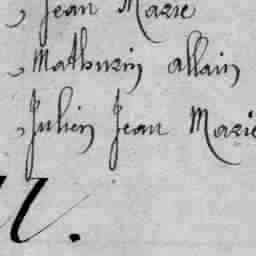 , Jean Marie
, Mathurin allain
, Julien Jean Marie